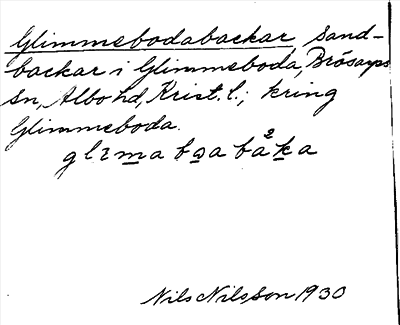 Glimmebodabackar, Sand-
backar i Glimmeboda, Brösarps
Sn, Albo hd, Krist. l.; kring
Glimmeboda.
glɪma bɷa båk̲a
Nils Nilsson 1930